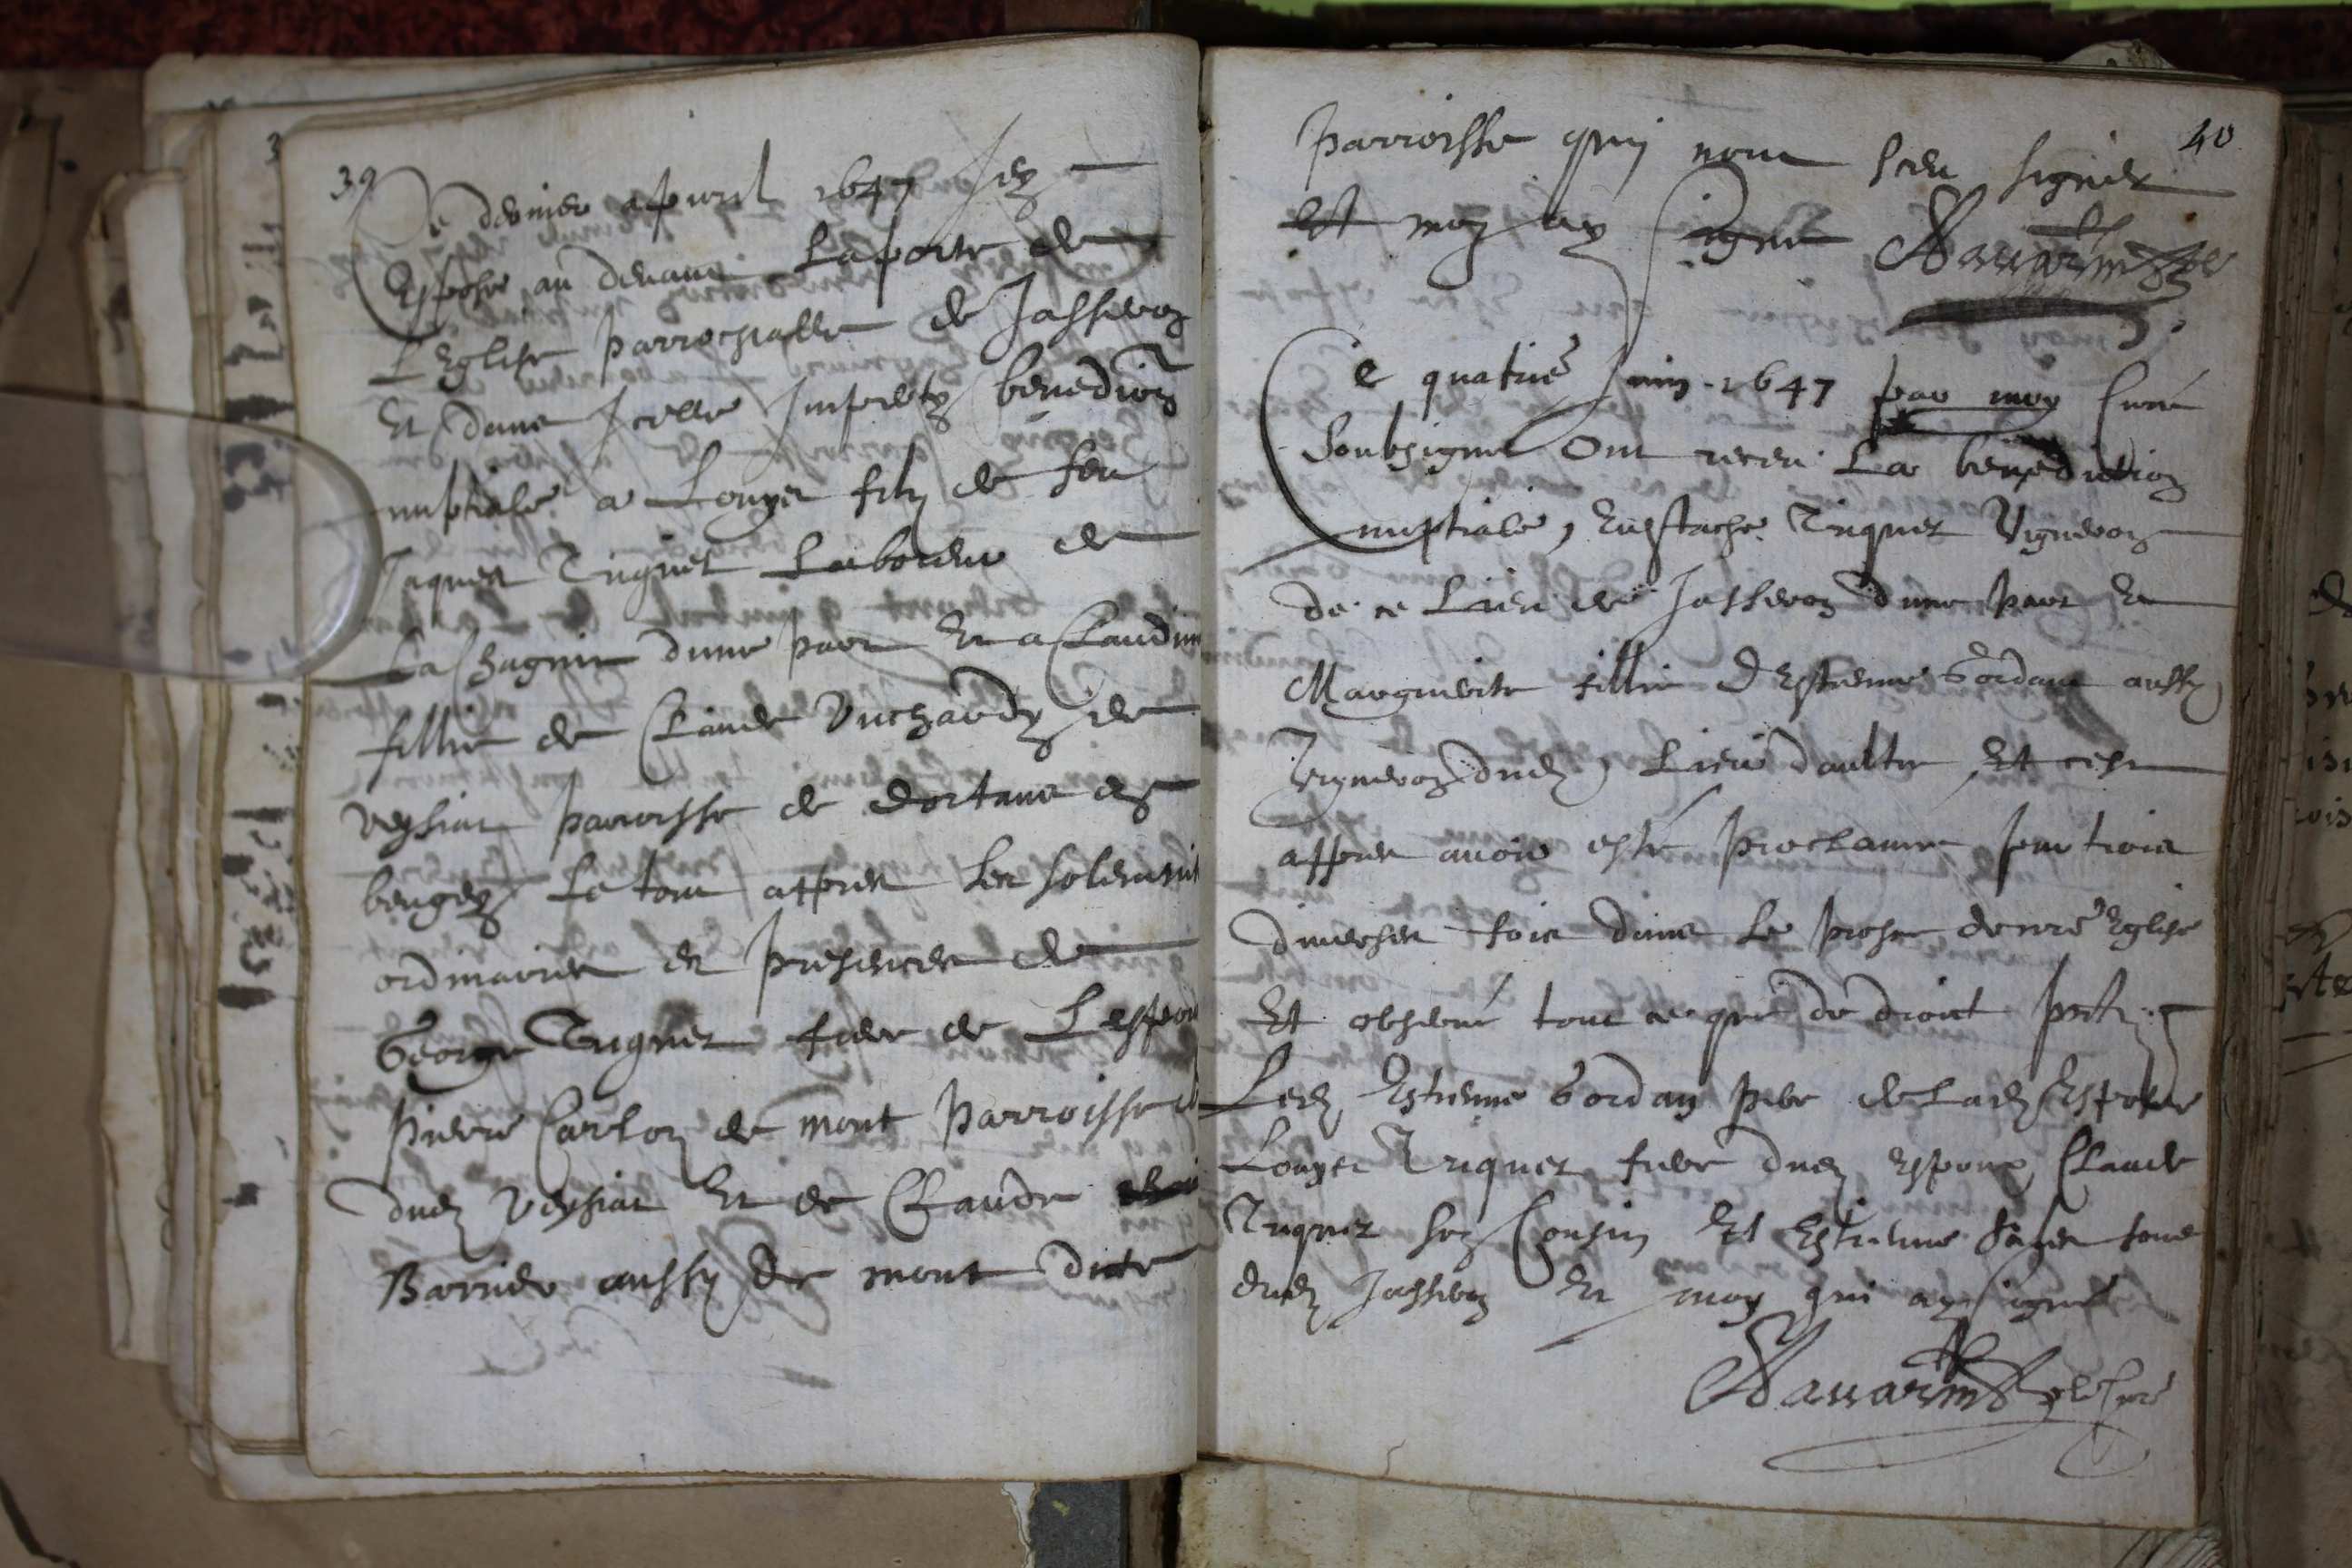 39
Ce dernier apuril 1647 J'ey
Espose au deuant La porte de
L'Eglise parrochialle de Jasseron
Et dans Icelle Imparty benedion
nuptiale a Louys filz de feu
Jaques Tuquet Laboreur de
La Chagnie dune part Et a Claudine
fillie de Claude Vuchardz de
veyssiat parroisse de dortans en
beugey Le tout appres les solemnit
ordinaires en presences de
George Tuquet frere de Lespou
Pierre Carlon de mont Parroisse
dud veyssiat Et de Claude
Barrier aussy De mont dicte
40
parroisse quy nont sceu signer
et moy ay signe Sauarin
Ce quatrie Juin 1647 par moy Cure
Soubsigne Ont receu La benediction
nuptiale, Eustache Tuquet Vigneron
de ce Lieu de Jasseron dune part Et
Marguerite fillie D Estienne Gordans aussy
Vigneron dud Lieu daultre, Et ce
appres auoir este proclame par trois
diuerses fois dans Le prosne de nre Eglise
Et obserué tout ce que de droict pnts
Led Estienne Gordan pere de Lad Espouse
Louys Triquet frere dud Espoux Claude
Tuquet son Cousin Et Estienne tous
dud Jasseron Et moy qui ay signé
Sauarin Cure